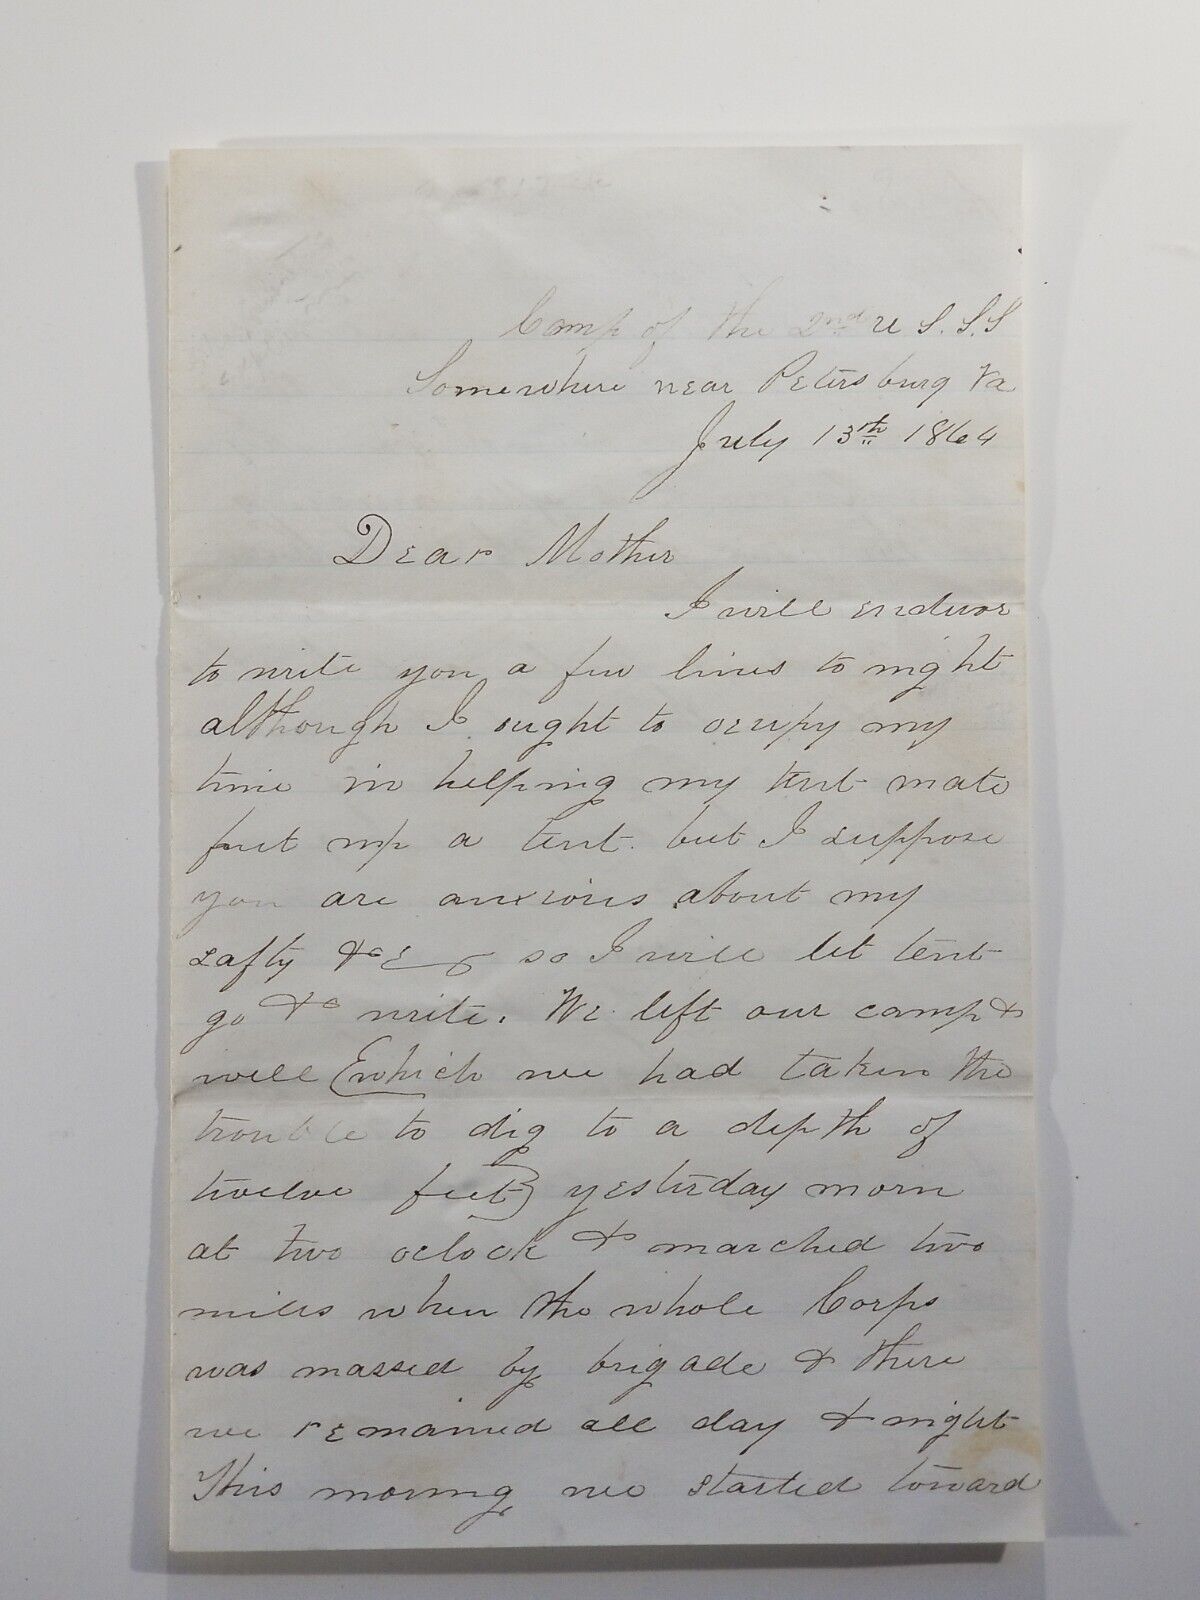 Camp of the 2nd U.S.S.S
Somewhere near Petersburg Va
July 13th 1864
Dear Mother
I will endevor
to write you a few lines to night
although I ought to ocupy my
time in helping my tent mate
put up a tent. but I suppose
you are anxious about my
safty &c so I will let tent
go & write. We left our camp &
well (which we had taken the
trouble to dig to a depth of
twelve feet) yesterday morn
at two oclock & marched two
miles when the whole Corps
was massed by brigade & there
we remained all day & night
This morning we started toward